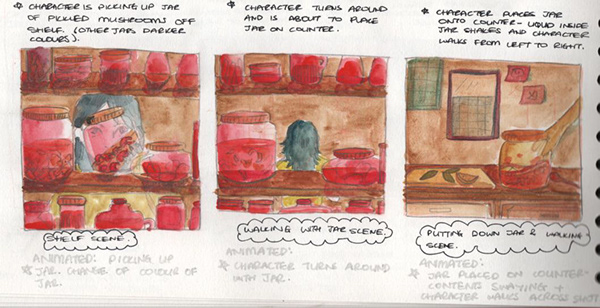 * CHARACTER IS PICKING UP JAR
OF PICKLED MUSHROOMS OFF
SHELF. (OTHER JARS DARKER
COLOURS).
* CHARACTER TURNS AROUND
AND IS ABOUT TO PLACE
JAR ON COUNTER.
* CHARACTER PLACES JAR
ONTO COUNTER - LIQUID INSIDE
JAR SHAKES AND CHARACTER
WALKS FROM LEFT TO RIGHT.
SHELF SCENE.
WALKING WITH JAR SCENE.
PUTTING DOWN JAR & WALKING
SCENE.
ANIMATED: PICKING UP
* JAR. CHANGE OF COLOUR OF
JAR.
ANIMATED:
* CHARACTER TURNS AROUND
WITH JAR.
ANIMATED:
* JAR PLACED ON COUNTER-
CONTENTS SWAYING +
CHARACTER WALKS ACROSS